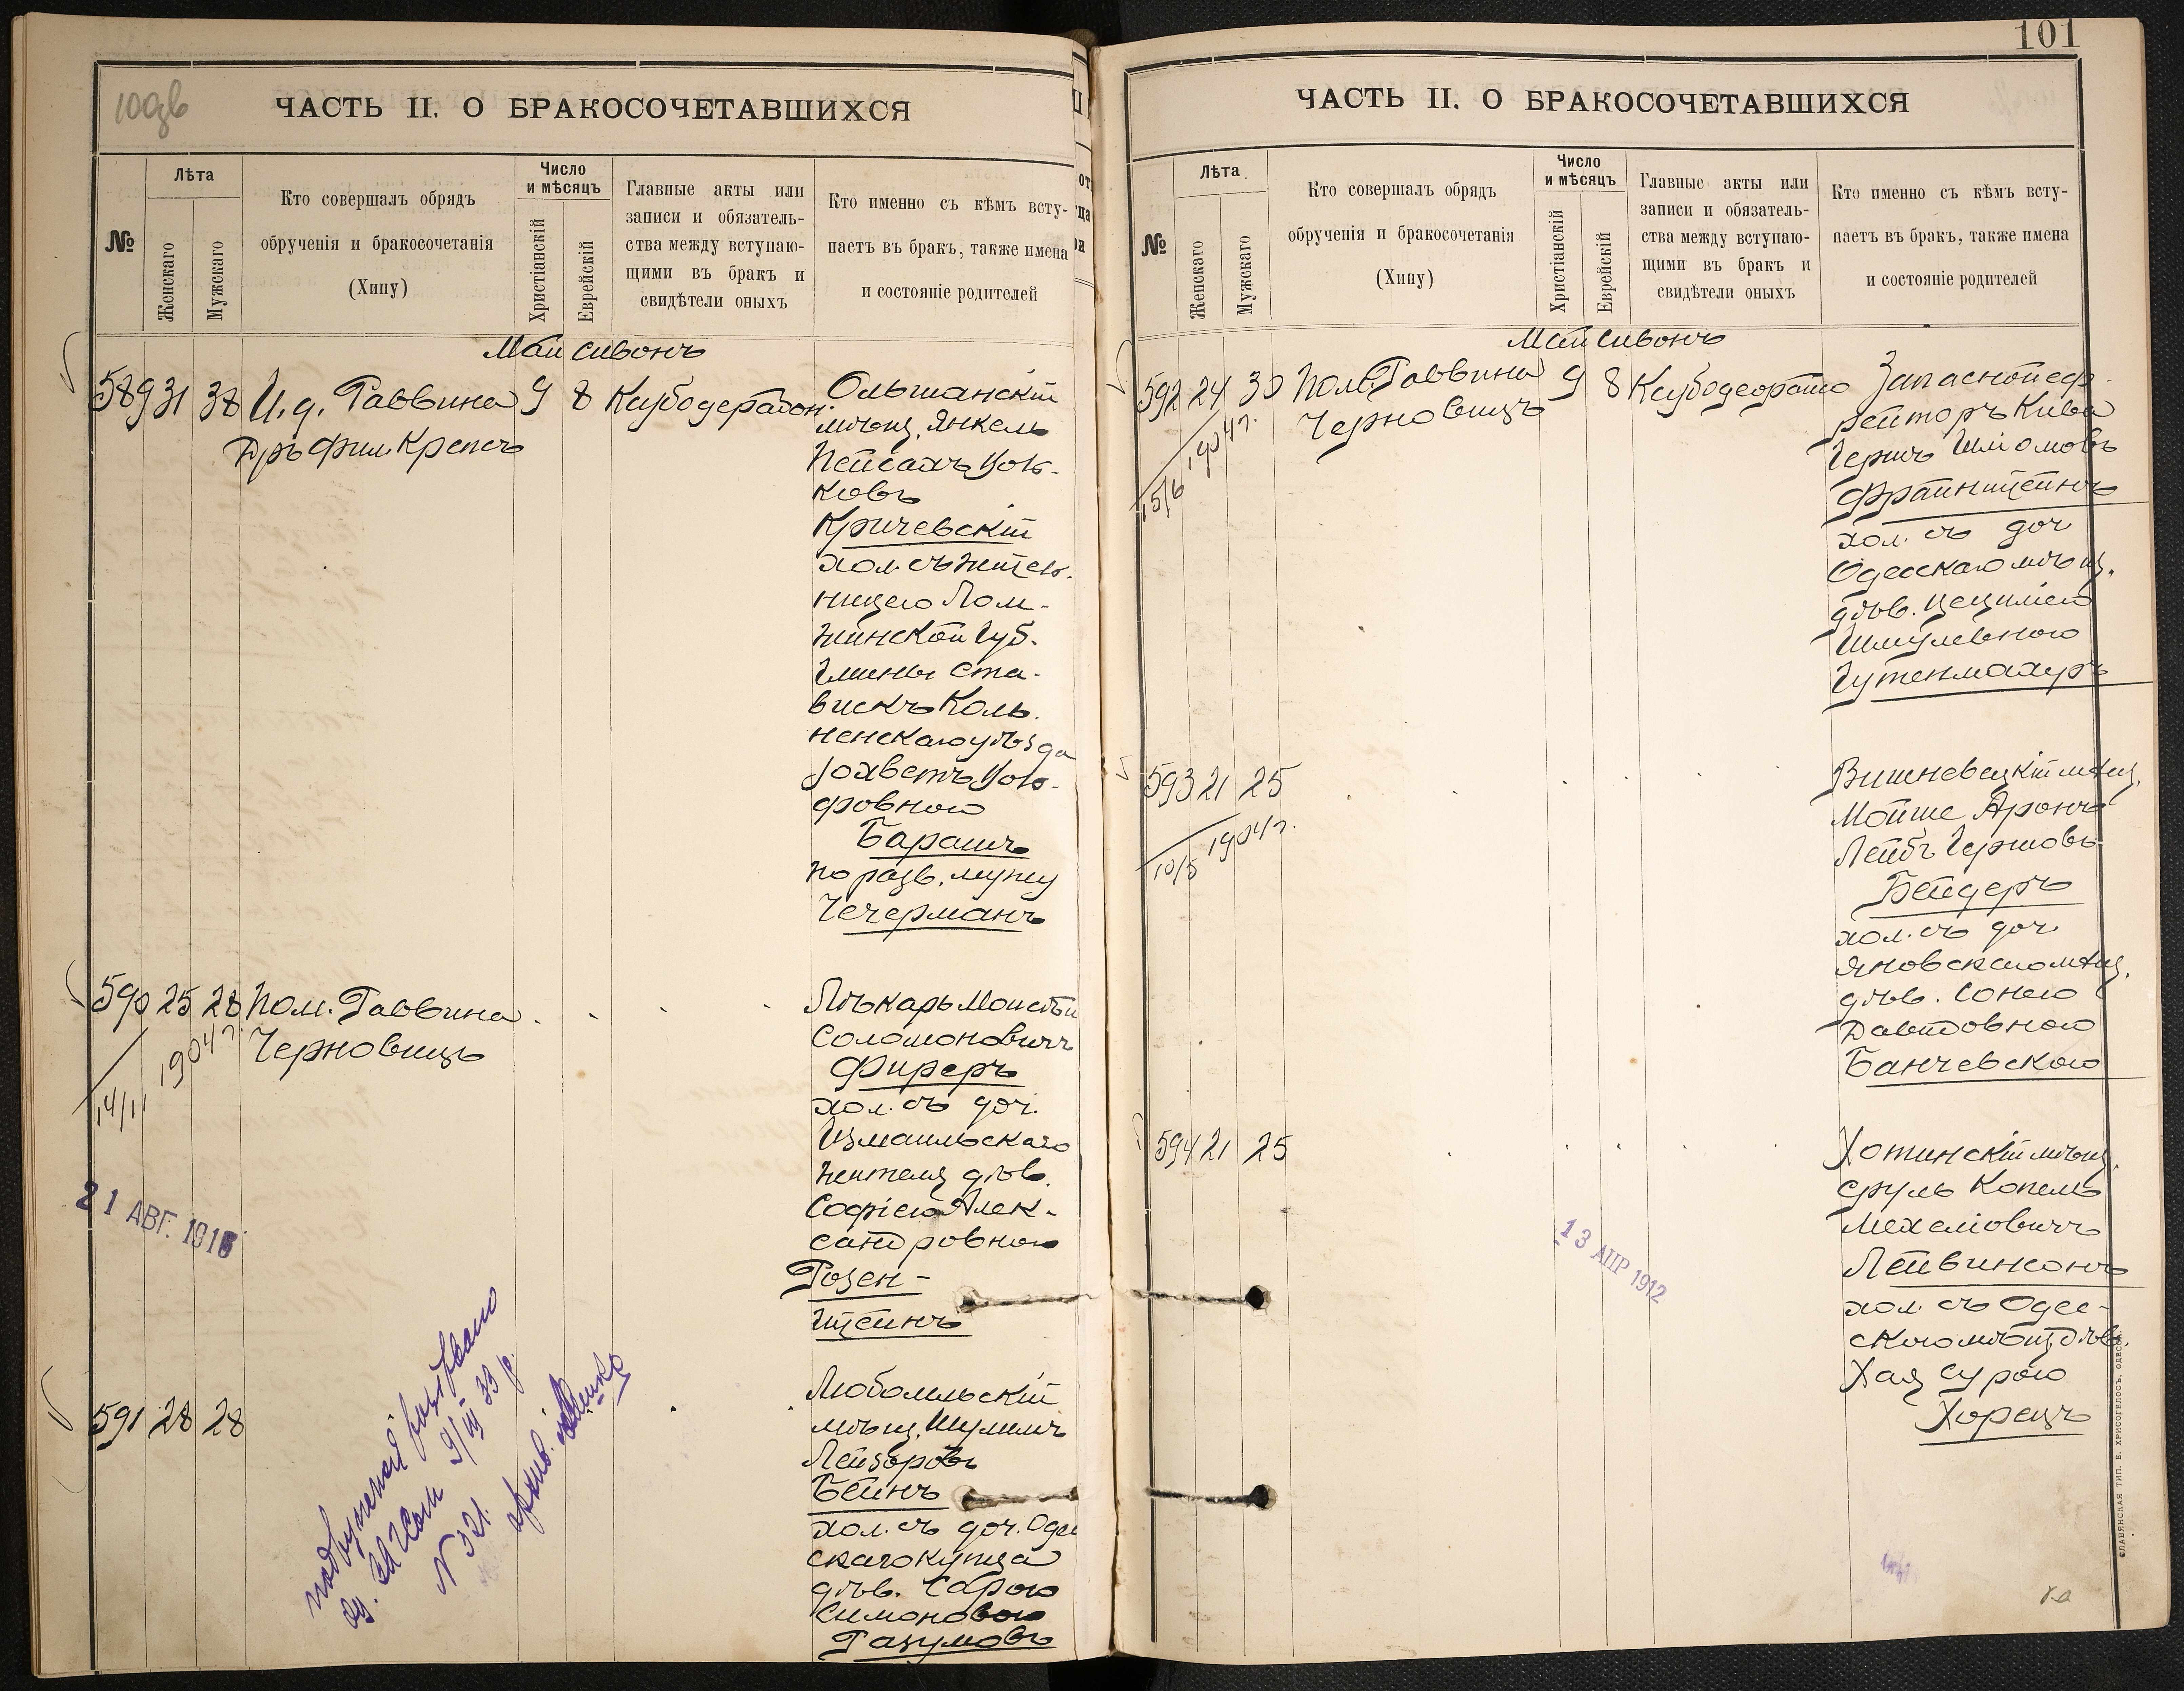 100дв
ЧАСТЬ II. О БРАКОСОЧЕТАВШИХСЯ
№
Лѣта
Женскаго
Мужскаго
Кто совершалъ обрядъ
обрученія и бракосочетанія
(Хипу)
Число
и мѣсяцъ
Христіанскій
Еврейскій
Главные акты или
записи и обязатель-
ства между вступаю-
щими въ бракъ и
свидѣтели оныхъ
Кто именно съ кѣмъ всту-
паетъ въ бракъ, также имена
и состояніе родителей
Май Сивонъ
589 31 38 И.д. Раввина 9 8 Кубодератон.
Дръ Фил. Крепсъ
Ольшанскій
мѣщ. Янкель
Пейсахъ
ковъ
Кричевскій
хол. съ житель-
ницею Лом-
жинской Губ.
Гмины Ста-
вискъ Коль-
ненскаго уѣзда
фровною
Барашъ
по разв. мужу
Чечерманъ
590 25 28 Пом. Раввина
Черновицъ
14/11 1904 г.
Лѣкарь Моисей
Соломоновичъ
Фиреръ
хол. съ доч.
Измаильскаго
жителя дѣв.
Софіею Алек-
сандровною
Розен-
штейнъ
21 АВГ. 1916
591 28 28
Любомльскій
мѣщ. Шулимъ
Лейзоровъ
Бейнъ
хол. съ доч. Одес
скаго купца
дѣв. Сарою
Симоновою
Разумовъ
9/III 33 р.
N 321.
101
ЧАСТЬ II. О БРАКОСОЧЕТАВШИХСЯ
№
Лѣта
Женскаго
Мужскаго
Кто совершалъ обрядъ
обрученія и бракосочетанія
(Хипу)
Число
и мѣсяцъ
Христіанскій
Еврейскій
Главные акты или
записи и обязатель-
ства между вступаю-
щими въ бракъ и
свидѣтели оныхъ
Кто именно съ кѣмъ всту-
паетъ въ бракъ, также имена
и состояніе родителей
Май Сивонъ
592 24 30 Пом. Раввина 9 8 Кубодеорато
Черновицъ
15/6 1904 г.
Запасной еф-
рейторъ Кива
Гершъ Шліомовъ
Франштейнъ
хол. съ доч
Одесскаго мѣщ.
дѣв. Цецилiею
Шмулевною
Гутенмахеръ
593 21 25
10/5 1904 г.
Вишневецкій мѣщ.
Мойше Аронъ
Лейбъ Гершовъ
Бейдеръ
хол. съ доч
Яновскаго мѣщ.
дѣв. Сонею
Давидовною
Банчевскою
594 21 25
Хотинскій мѣщ.
Сруль Копель
Мехеліовичъ
Лейвинсонъ
хол. съ Одес-
скою мѣщ. дѣв.
Хая Сурою
Хорецъ
13 АПР 1912
СЛАВЯНСКАЯ ТИП. Е. ХРИСОГЕЛОСЪ, ОДЕССА.